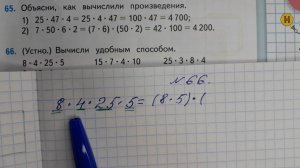 65. Объясни, как вычислили произведения.
1) 25 · 47 · 4 = 25 · 4 · 47 = 100 · 47 = 4 700;
2) 7 · 50 · 6 · 2 = (7 · 6) · (50 · 2) = 42 · 100 = 4 200.
66. (Устно.) Вычисли удобным способом.
8 · 4 · 25 · 5 15 · 7 · 4 · 10 25 · 3 · 8 · 4
№ 66.
8 · 4 · 25 · 5 = (8 · 5) · (